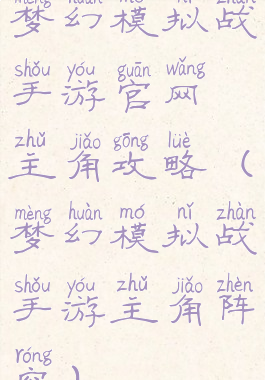 mèng huàn mó nǐ zhàn
梦幻模拟战
shǒu yóu guān wǎng
手游官网
zhǔ jiǎo gōng lüè
主角攻略（
mèng huàn mó nǐ zhàn
梦幻模拟战
shǒu yóu zhǔ jiǎo zhèn
手游主角阵
róng
容）